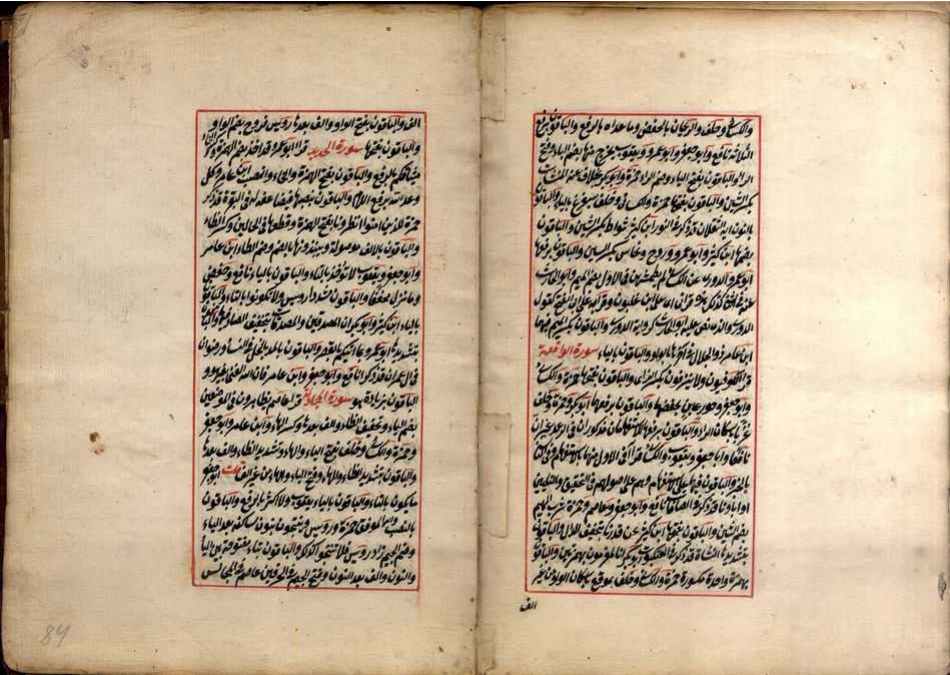 والكسائي وخلف والريحان بالخفض وما عداه بالرفع والباقون برفع
الثلاثة نافع وابو جعفر وابو عمرو ويعقوب يخرج منها بضم الياء وفتح
الراء والباقون بفتح الياء وضم الراء حمزة وابو بكر خلاف عنه المنشآت
بكسر الشين والباقون بفتحها حمزة والكسائي وخلف سيفرغ بالياء والباقون
بالنون ايه الثقلان قد ذكر في النور ابن كثير شواظ بكسر الشين والباقون
بضمها ابن كثير وابو عمرو وروح ونحاس بكسر السين والباقون برفعها
ابو عمر الدوري عن الكسائي لم يطمثهن في الاول بضم الميم وابو الحارث
ابن عامر ذو الجلال في آخرها بالواو والباقون بالياء سورة الواقعة
قرا الكوفيون ولا ينزفون بكسر الزاي والباقون بفتحها حمزة والكسائي
وابو جعفر وحور عين بخفضهما والباقون برفعهما ابو بكر وحمزة وخلف
عربا باسكان الراء والباقون برفعها الاستفهامان مذكوران في الرعد غير ان
نافعا وابا جعفر ويعقوب والكسائي قرا في الاول منهما بالاستفهام وفي الثاني
بالخبر والباقون فيهما بالاستفهام وهم على اصولهم في التحقيق والتليين
او اباؤنا قد ذكر في الصافات نافع وابو جعفر وعاصم وحمزة شرب الهيم
بضم الشين والباقون بفتحها ابن كثير نحن قدرنا بتخفيف الدال والباقون
بتشديدها النشأة قد ذكر في العنكبوت ابو بكر ائنا لمغرمون بهمزتين والباقون
بهمزة واحدة مكسورة حمزة والكسائي وخلف بموقع باسكان الواو من غير
الف
الف والباقون بفتح الواو والف بعدها رويس فروح بضم الراء
والباقون بفتحها سورة الحديد قرا ابو عمرو وقد اخذ بضم الهمزة وكسر الخاء
ميثاقكم بالرفع والباقون بفتح الهمزة والخاء والنصب ابن عامر وكل
وعد الله برفع اللام والباقون بنصبها فيضاعفه له في البقرة قد ذكر
حمزة للذين امنوا انظرونا بفتح الهمزة وقطعها في الحالين وكسر الظاء
والباقون بالالف موصولة ويبتدونها بالضم وضم الظاء ابن عامر
وابو جعفر ويعقوب لا تؤخذ بالتاء والباقون بالياء نافع وحفص
وما نزل مخففا والباقون مشددا رويس ولا تكونوا بالتاء والباقون
بالياء ابن كثير وابو بكر ان المصدقين والمصدقات بتخفيف الصاد فيهما والباقون
بتشديدها ابو عمرو بما اتيكم بالقصر والباقون بالمد بالبخل في النساء ورضوان
في ال عمران قد ذكرا نافع وابو جعفر وابن عامر فان الله الغني بغير هو
الباقون بزيادة هو سورة المجادلة قرا عاصم يظاهرون في الموضعين
بضم الياء وتخفيف الظاء والف بعدها وكسر الهاء وابن عامر وابو جعفر
وحمزة والكسائي وخلف بفتح الياء والهاء وتشديد الظاء والف بعدها
والباقون بتشديد الظاء والهاء وفتح الياء والهاء من غير الف ابو جعفر
ما تكون بالتاء والباقون بالياء يعقوب ولا اكثر بالرفع والباقون
بالنصب حمزة ورويس وينتجون بنون ساكنة بعد الياء
وضم الجيم زاد رويس فلا تنتجوا كذلك والباقون بتاء مفتوحة بين الياء
والنون والف بعد النون وفتح الجيم في الحرفين عاصم في المجالس
84